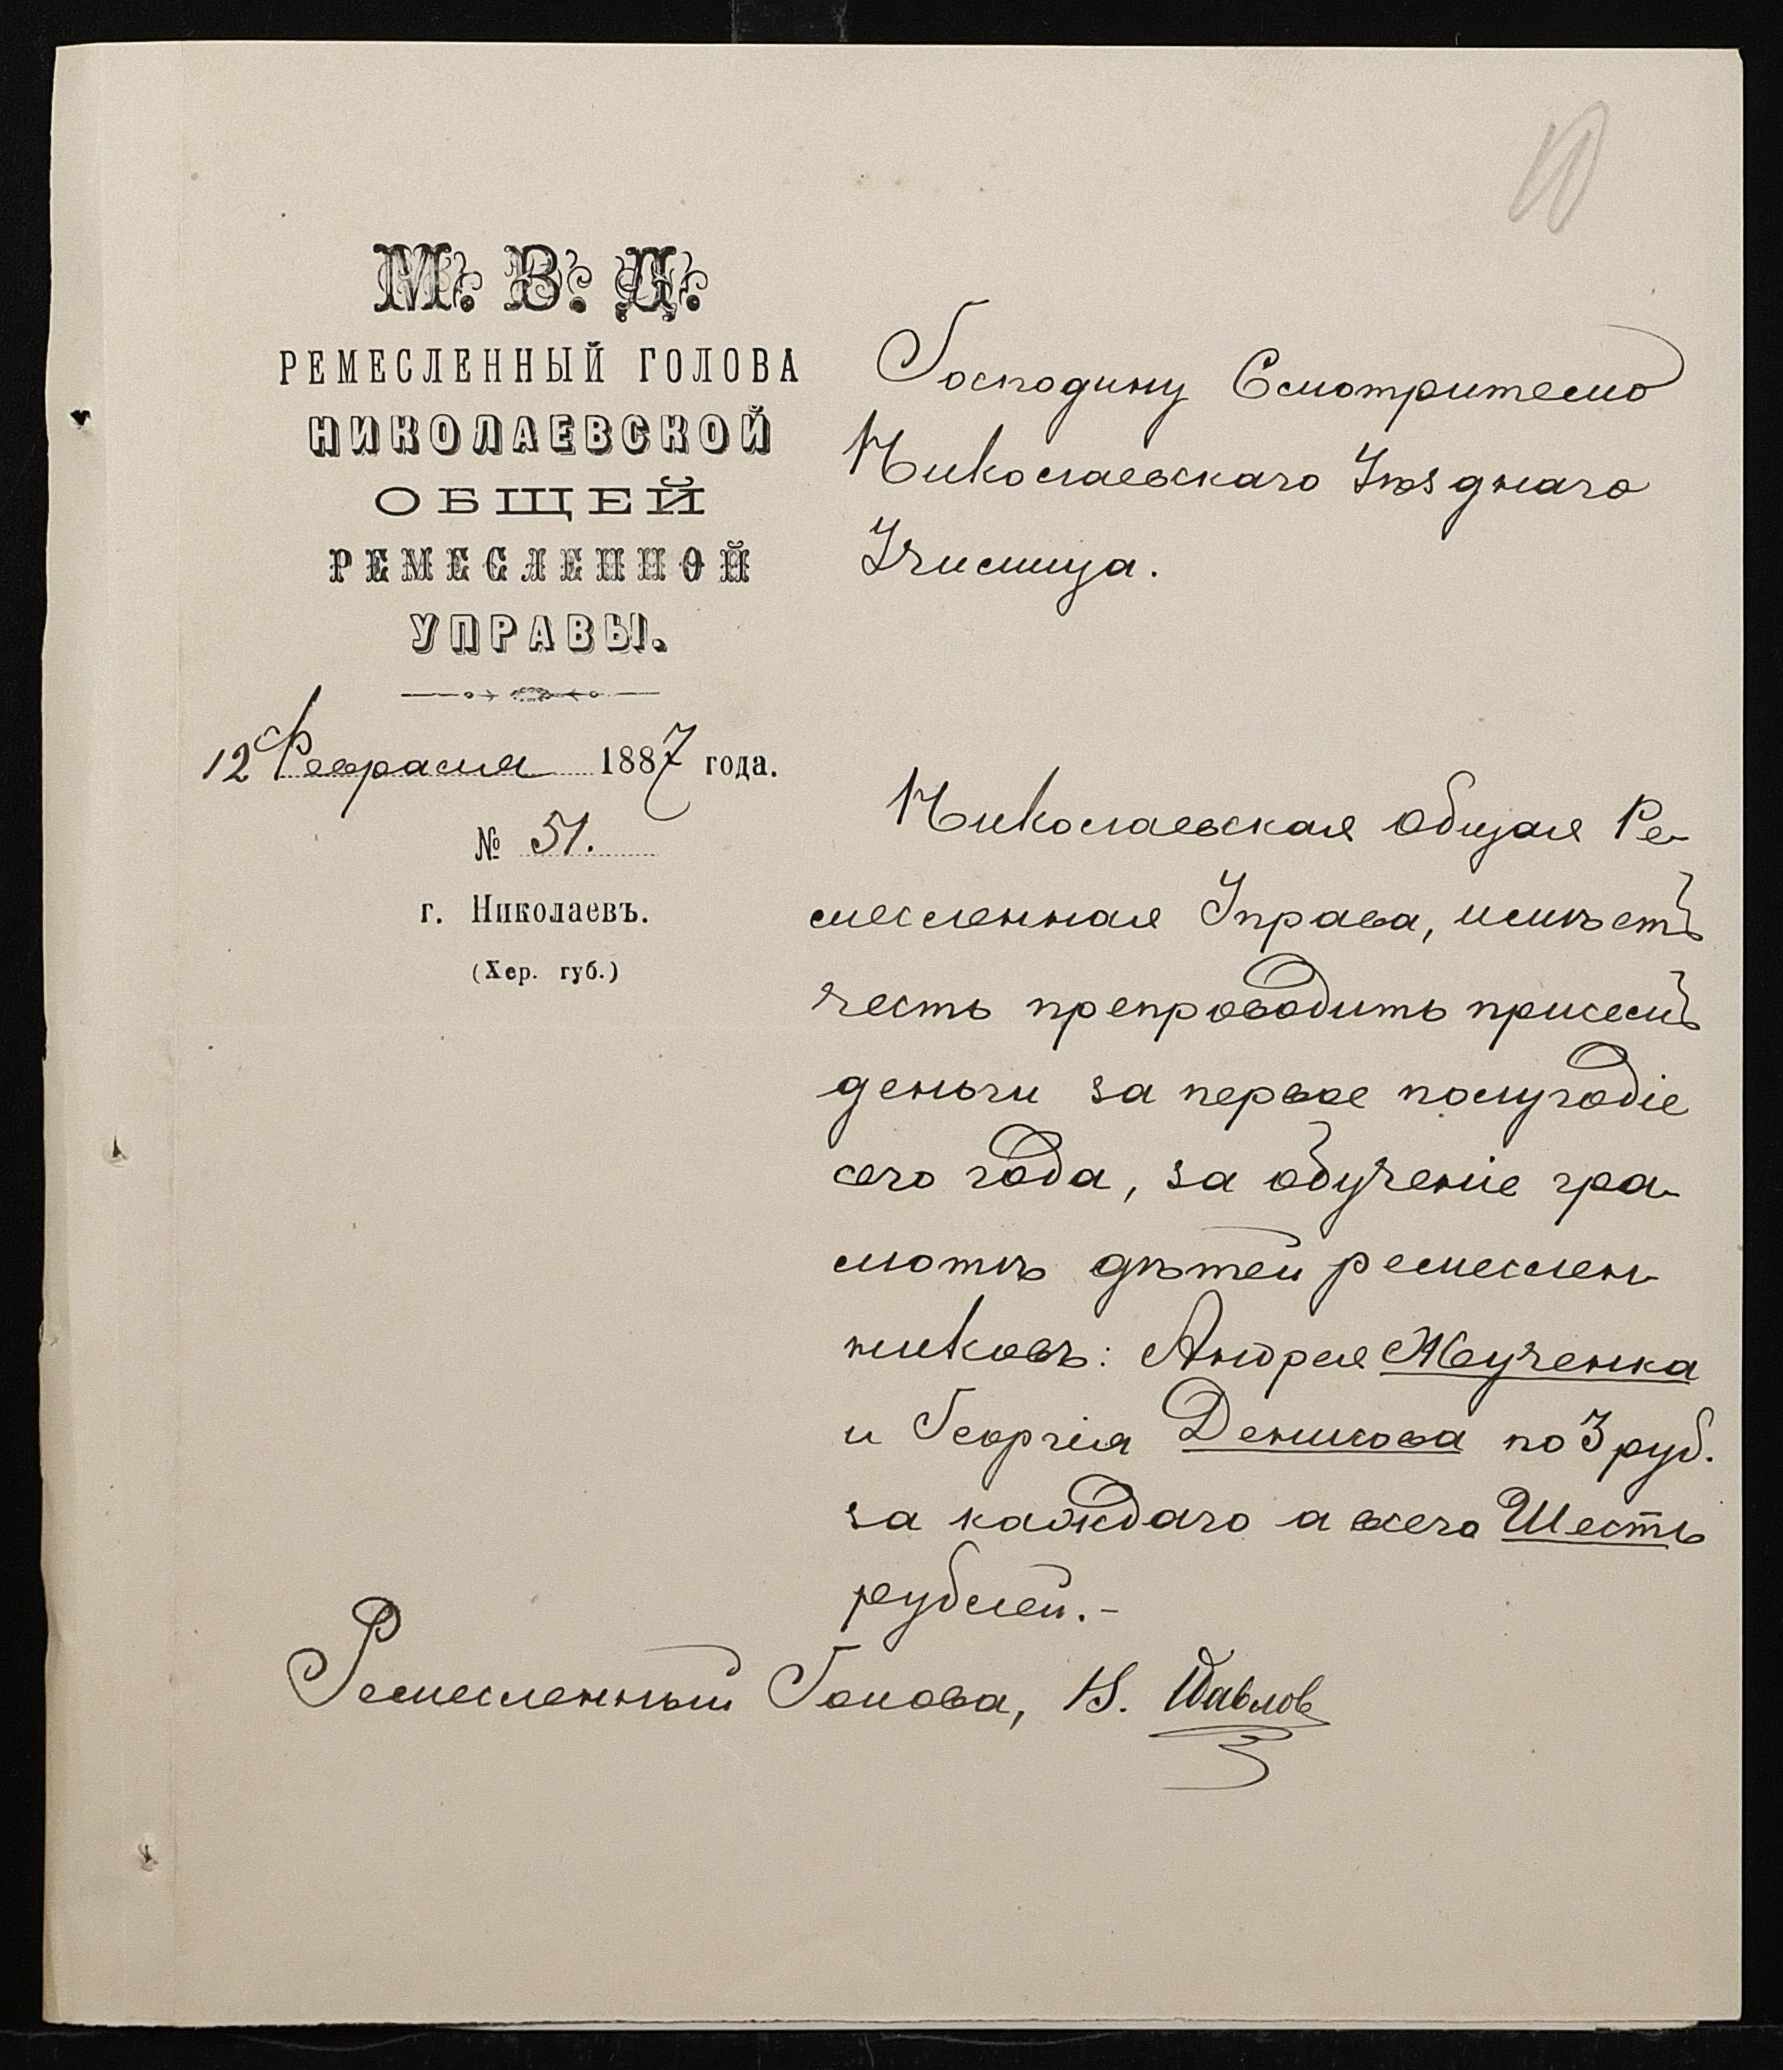 10
М. В. Д.
РЕМЕСЛЕННЫЙ ГОЛОВА
НИКОЛАЕВСКОЙ
ОБЩЕЙ
РЕМЕСЛЕННОЙ
УПРАВЫ.
12 Февраля 1887 года.
№ 51.
г. Николаевъ.
(Хер. губ.)
Господину Смотрителю
Николаевскаго Уѣзднаго
Училища.
Николаевская общая Ре-
месленная Управа, имѣетъ
честь препроводить присемъ
деньги за первое полугодіе
сего года, за обученіе гра-
мотѣ дѣтей ремеслен-
никовъ: Андрея Жученка
и Георгія Деникова по 3 руб.
за каждаго а всего Шесть
рублей.-
Ремесленный Голова, Н. Павлов